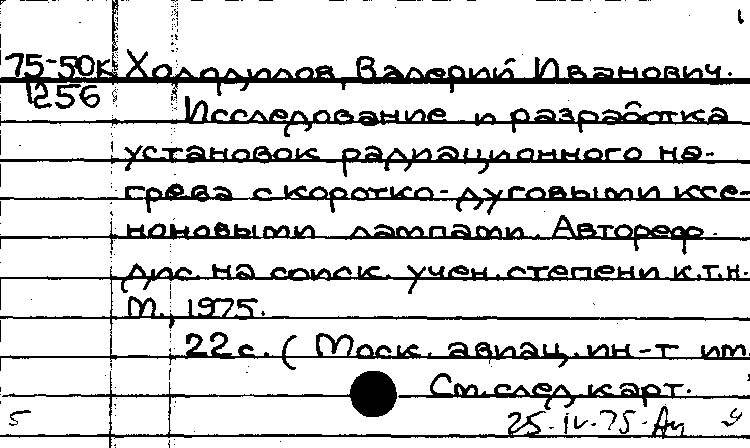 75-50к Холодилов, Валерий Иванович.
1256
Исследование и разработка
установок радиационного на-
грева с коротко-дуговыми ксе-
ноновыми лампами. Автореф.
дис. на соиск. учен. степени к.т.н.
М., 1975.
22 с. ( Моск. авиац. ин-т им.
См. след. карт.
5 25-IV-75